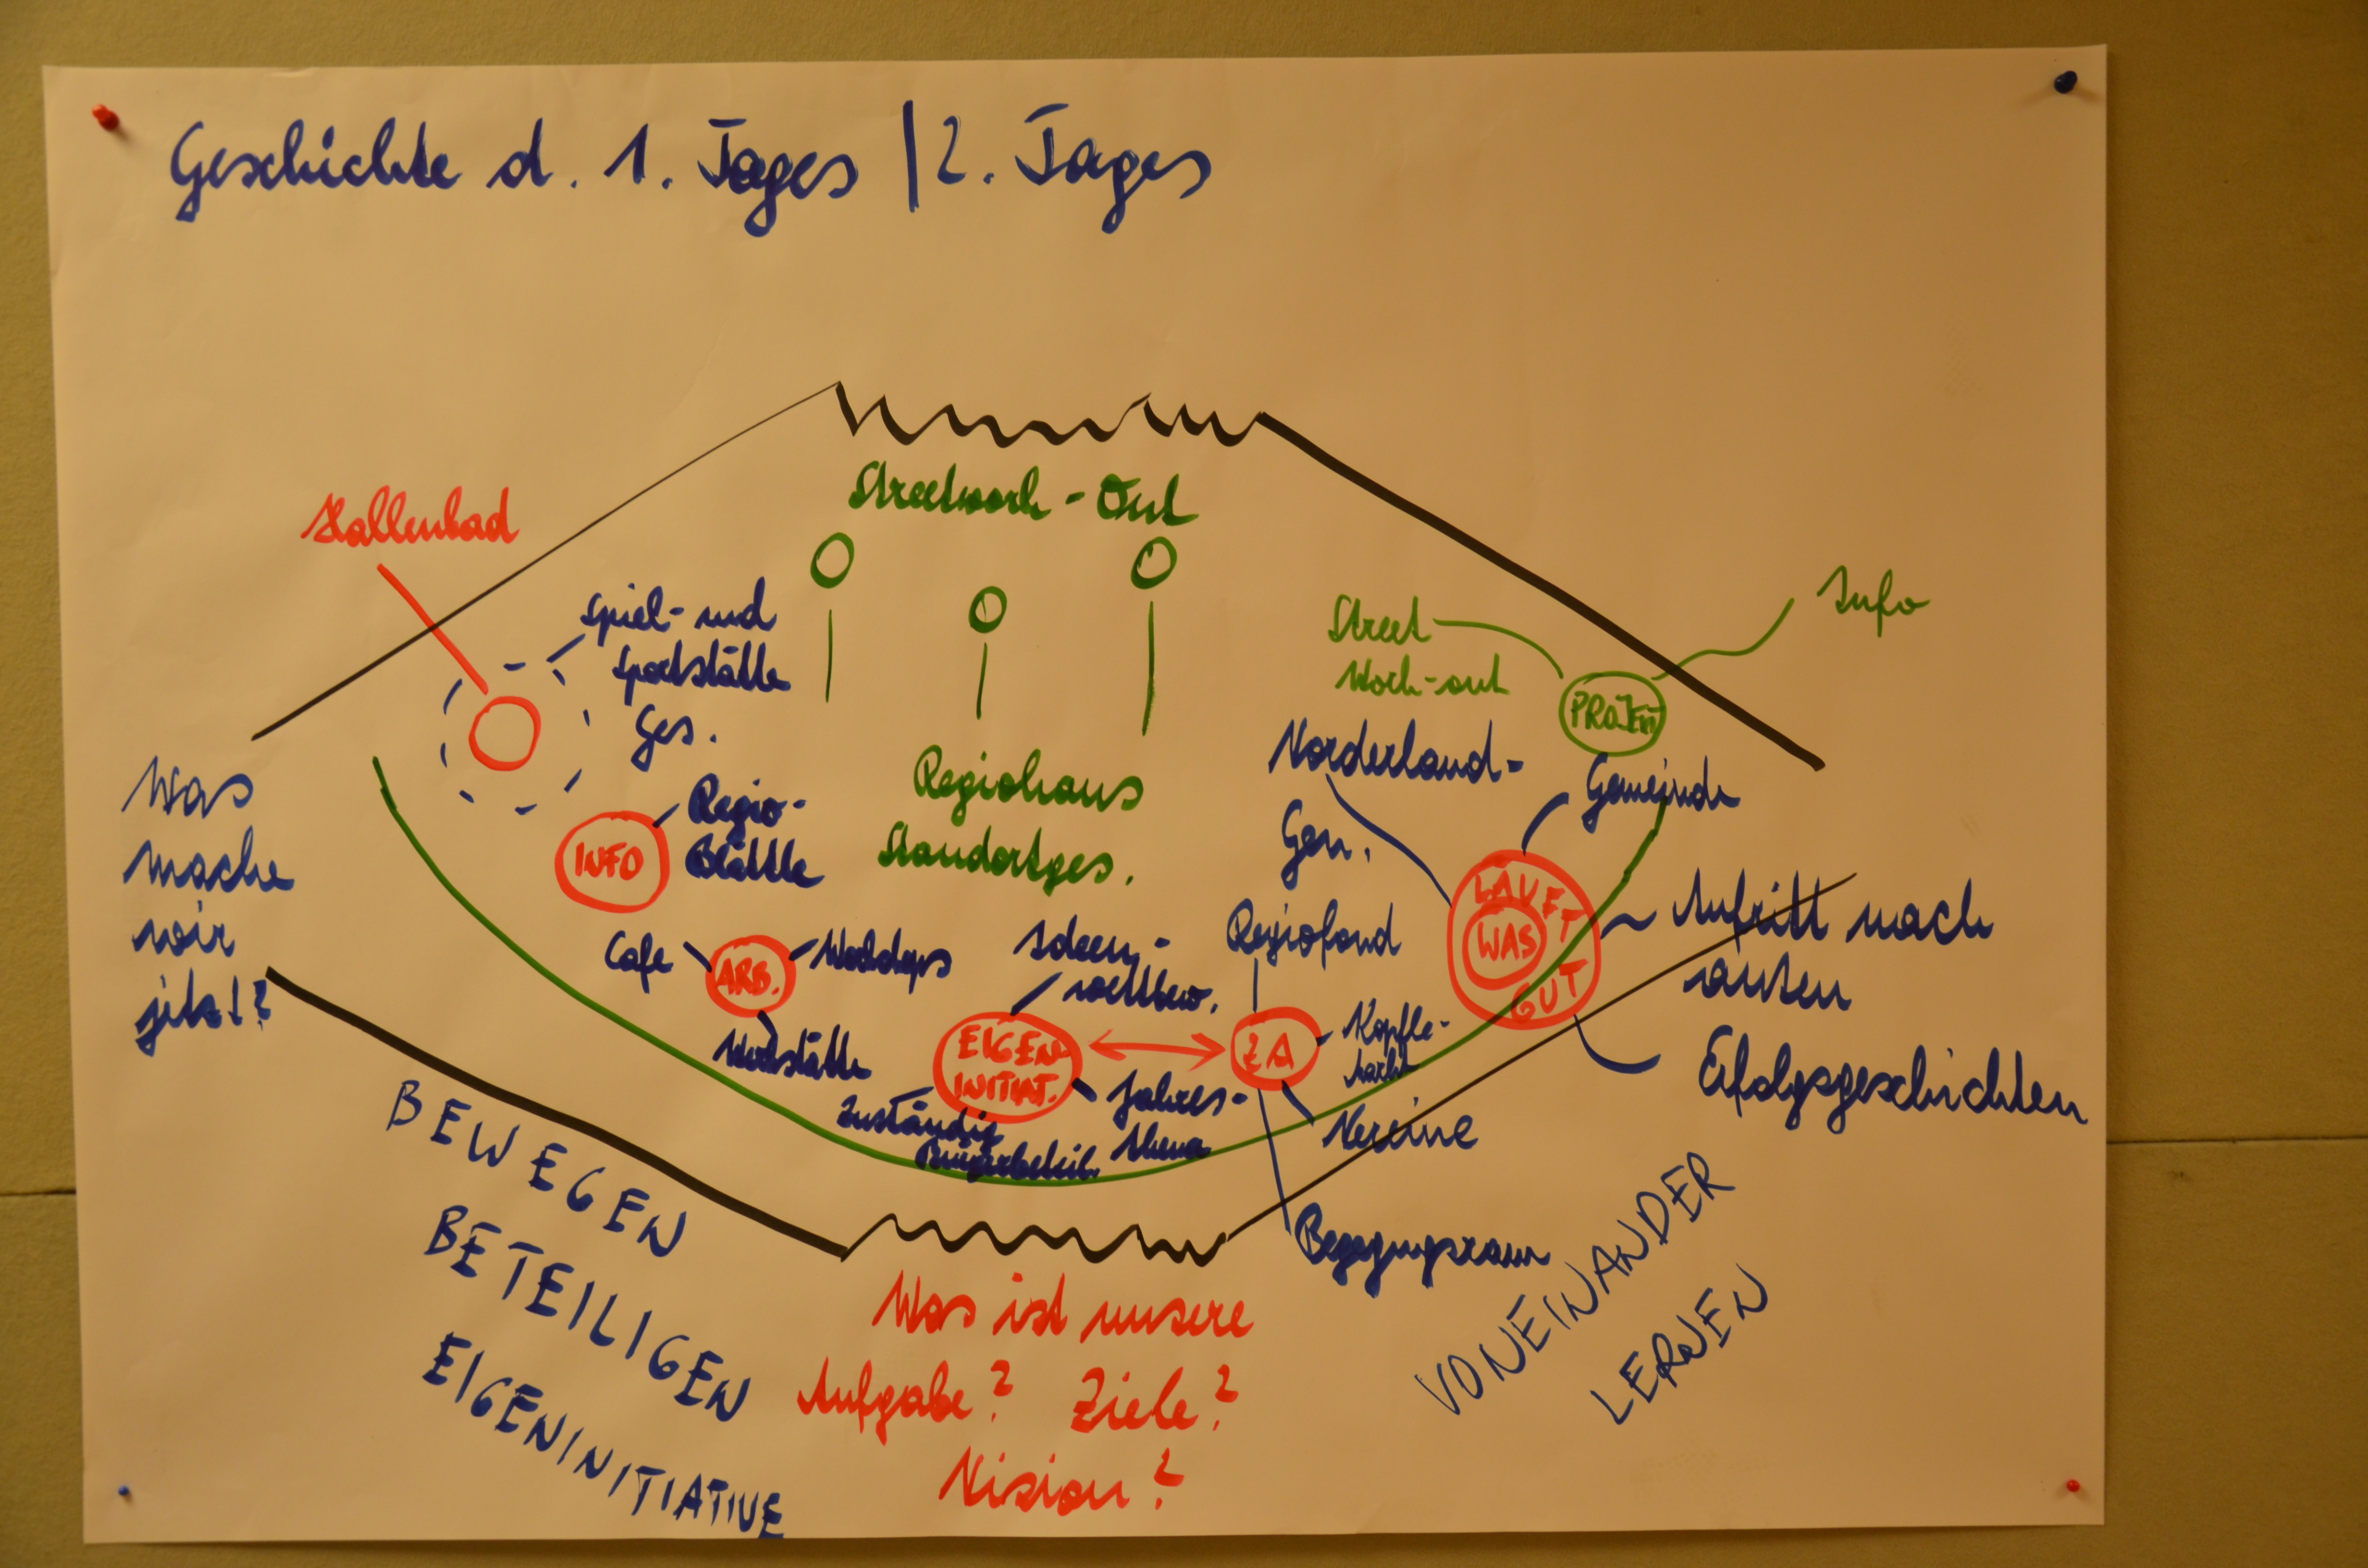 Geschichte d. 1. Tages | 2. Tages
Hallenbad
Streetwork-Out
Spiel- und
Sportstätte
Ges.
Street
Work-out
Info
PROJEKT
Regio-
Blättle
INFO
Regiohaus
Standortges.
Vorderland-
Gen.
Gemeinde
Was
mache
wir
jetzt?
Cafe
ARB.
Workshops
Werkstätte
Ideen-
wettbew.
EIGEN
INITIAT.
Zuständig
Bürgerbeteil.
Jahres-
thema
Regiofond
ZA
Vereine
Begegnungsraum
LAUFT
WAS
GUT
Auftritt nach
aussen
Erfolgsgeschichten
BEWEGEN
BETEILIGEN
EIGENINITIATIVE
Was ist unsere
Aufgabe? Ziele?
Vision?
VONEINANDER
LERNEN